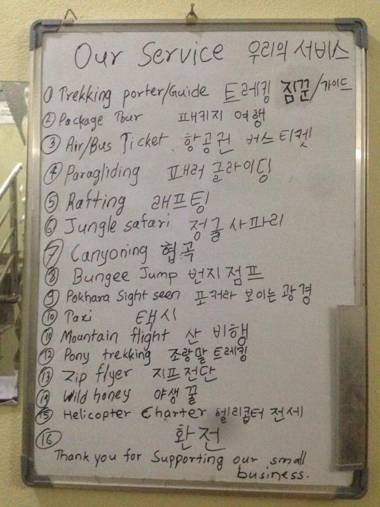 Our Service 우리의 서비스
① Trekking porter/Guide 트레킹 짐꾼/가이드
② Package Tour 패키지 여행
③ Air/Bus Ticket 항공권 버스티켓
④ Paragliding 패러글라이딩
⑤ Rafting 래프팅
⑥ Jungle safari 정글 사파리
⑦ Canyoning 협곡
⑧ Bungee Jump 번지 점프
⑨ Pokhara Sight seen 포카라 보이는 광경
⑩ Taxi 택시
⑪ Mountain flight 산 비행
⑫ Pony trekking 조랑말 트레킹
⑬ Zip flyer 지프 전단
⑭ Wild honey 야생 꿀
⑮ Helicopter Charter 헬리콥터 전세
⑯ 환전
Thank you for Supporting our small
business.